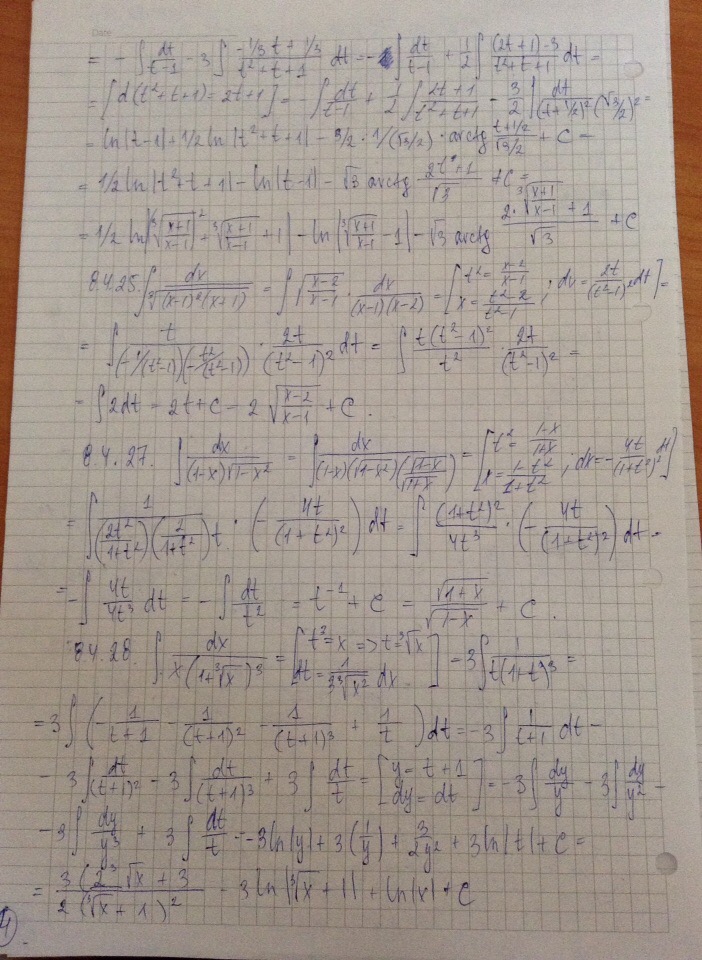 Date
= - ∫ dt/(t-1) - 3 ∫ (-1/3 t + 1/3)/(t²+t+1) dt = - ∫ dt/(t-1) + 1/2 ∫ ((2t+1)-3)/(t²+t+1) dt =
= [d(t²+t+1) = 2t+1] = - ∫ dt/(t-1) + 1/2 ∫ (2t+1)/(t²+t+1) - 3/2 ∫ dt/((t+1/2)²(√3/2)² =
= ln|t-1| + 1/2 ln|t²+t+1| - 3/2 · 1/(√3/2) · arctg (t+1/2)/(√3/2) + C =
= 1/2 ln|t²+t+1| - ln|t-1| - √3 arctg (2t+1)/√3 + C =
= 1/2 ln|∛((x+1)/(x-1))² + ∛((x+1)/(x-1)) + 1| - ln|∛((x+1)/(x-1)) - 1| - √3 arctg (2·∛((x+1)/(x-1)) + 1)/√3 + C
8.4.25. ∫ dx/∛((x-1)²(x+1)) = ∫ √((x-2)/(x-1)) · dx/((x-1)(x-2)) = [t² = (x-2)/(x-1) ; x = (t²-2)/(t²-1) ; dx = 2t/(t²-1)² dt] =
= ∫ t/((-1/(t²-1))(-t²/(t²-1))) · 2t/(t²-1)² dt = ∫ t(t²-1)²/t² · 2t/(t²-1)² =
= ∫ 2dt = 2t + c = 2 √((x-2)/(x-1)) + C.
8.4.27. ∫ dx/((1-x)√(1-x²)) = ∫ dx/((1-x)(√(1-x²)(√(1-x)/√(1+x))) = [t² = (1-x)/(1+x) ; x = (1-t²)/(1+t²) ; dx = - 4t/(1+t²)² dt]
= ∫ 1/((2t²/(1+t²))(2/(1+t²))t · (- 4t/(1+t²)²) dt = ∫ (1+t²)²/4t³ · (- 4t/(1+t²)²) dt =
= - ∫ 4t/4t³ dt = - ∫ dt/t² = t⁻¹ + C = √(1+x)/√(1-x) + C.
8.4.28. ∫ dx/(x(1+∛x)³) = [t³ = x => t = ∛x ; dt = 1/(3∛x²) dx] = 3 ∫ 1/(t(1+t)³ =
= 3 ∫ (- 1/(t+1) - 1/(t+1)² - 1/(t+1)³ + 1/t) dt = -3 ∫ 1/(t+1) dt -
- 3 ∫ dt/(t+1)² - 3 ∫ dt/(t+1)³ + 3 ∫ dt/t = [y = t+1 ; dy = dt] = -3 ∫ dy/y - 3 ∫ dy/y² -
- 3 ∫ dy/y³ + 3 ∫ dt/t = -3 ln|y| + 3(1/y) + 3/2y² + 3 ln|t| + C =
= 3(2∛x + 3/2(∛x+1)² - 3 ln|∛x + 1| + ln|x| + C
4